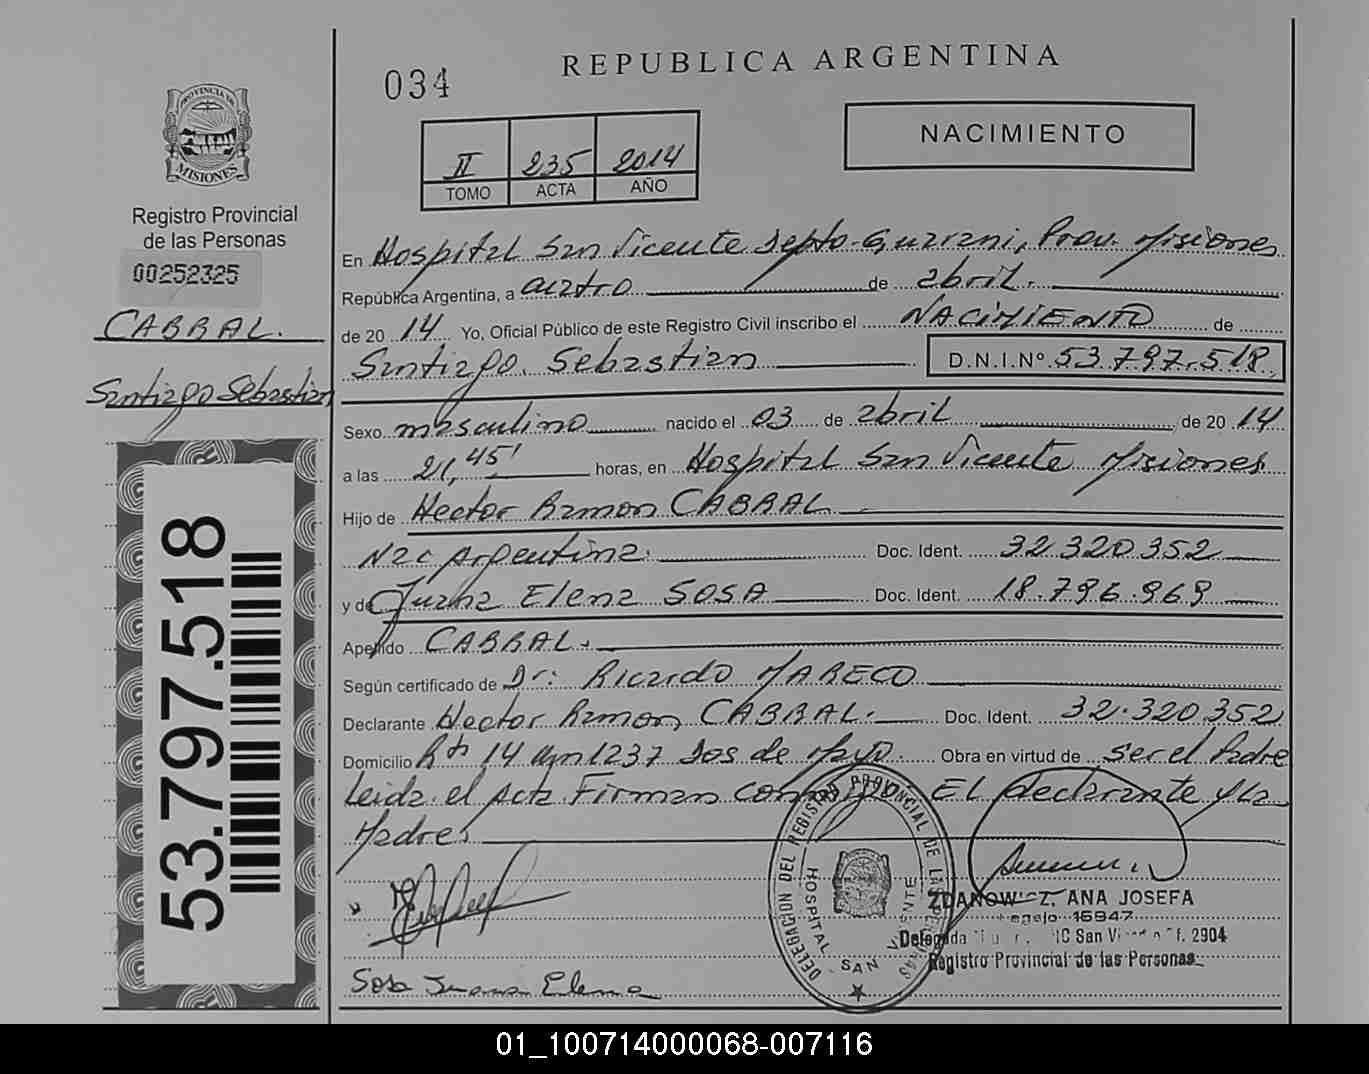 034
REPUBLICA ARGENTINA
NACIMIENTO
II 235 2014
TOMO ACTA AÑO
PROVINCIA DE
MISIONES
Registro Provincial
de las Personas
00252325
CABRAL.
Santiago Sebastian
53.797.518
En Hospital San Vicente Depto-Guarani, Prov. Misiones
República Argentina, a cuatro de abril.
de 2014 Yo, Oficial Público de este Registro Civil inscribo el NACIMIENTO de
Santiago Sebastian D.N.I.Nº 53.797.518
Sexo masculino nacido el 03 de abril de 2014
a las 21,45' horas, en Hospital San Vicente Misiones
Hijo de Hector Ramon CABRAL
Nac Argentina. Doc. Ident. 32.320.352
y de Juana Elena SOSA Doc. Ident. 18.796.969
Apellido CABRAL.
Según certificado de Dr: Ricardo MARECO
Declarante Hector Ramon CABRAL. Doc. Ident. 32.320.352
Domicilio Rta 14 Km 1237 Dos de Mayo. Obra en virtud de ser el Padre
Leida el Acta Firman conmigo. El declarante y La
Madre.
DELEGACION DEL REGISTRO PROVINCIAL DE LAS PERSONAS
HOSPITAL SAN VICENTE
ANA JOSEFA
Legajo 15947
Delegada San 2904
Registro Provincial de las Personas
Sosa Juana Elena
01_100714000068-007116